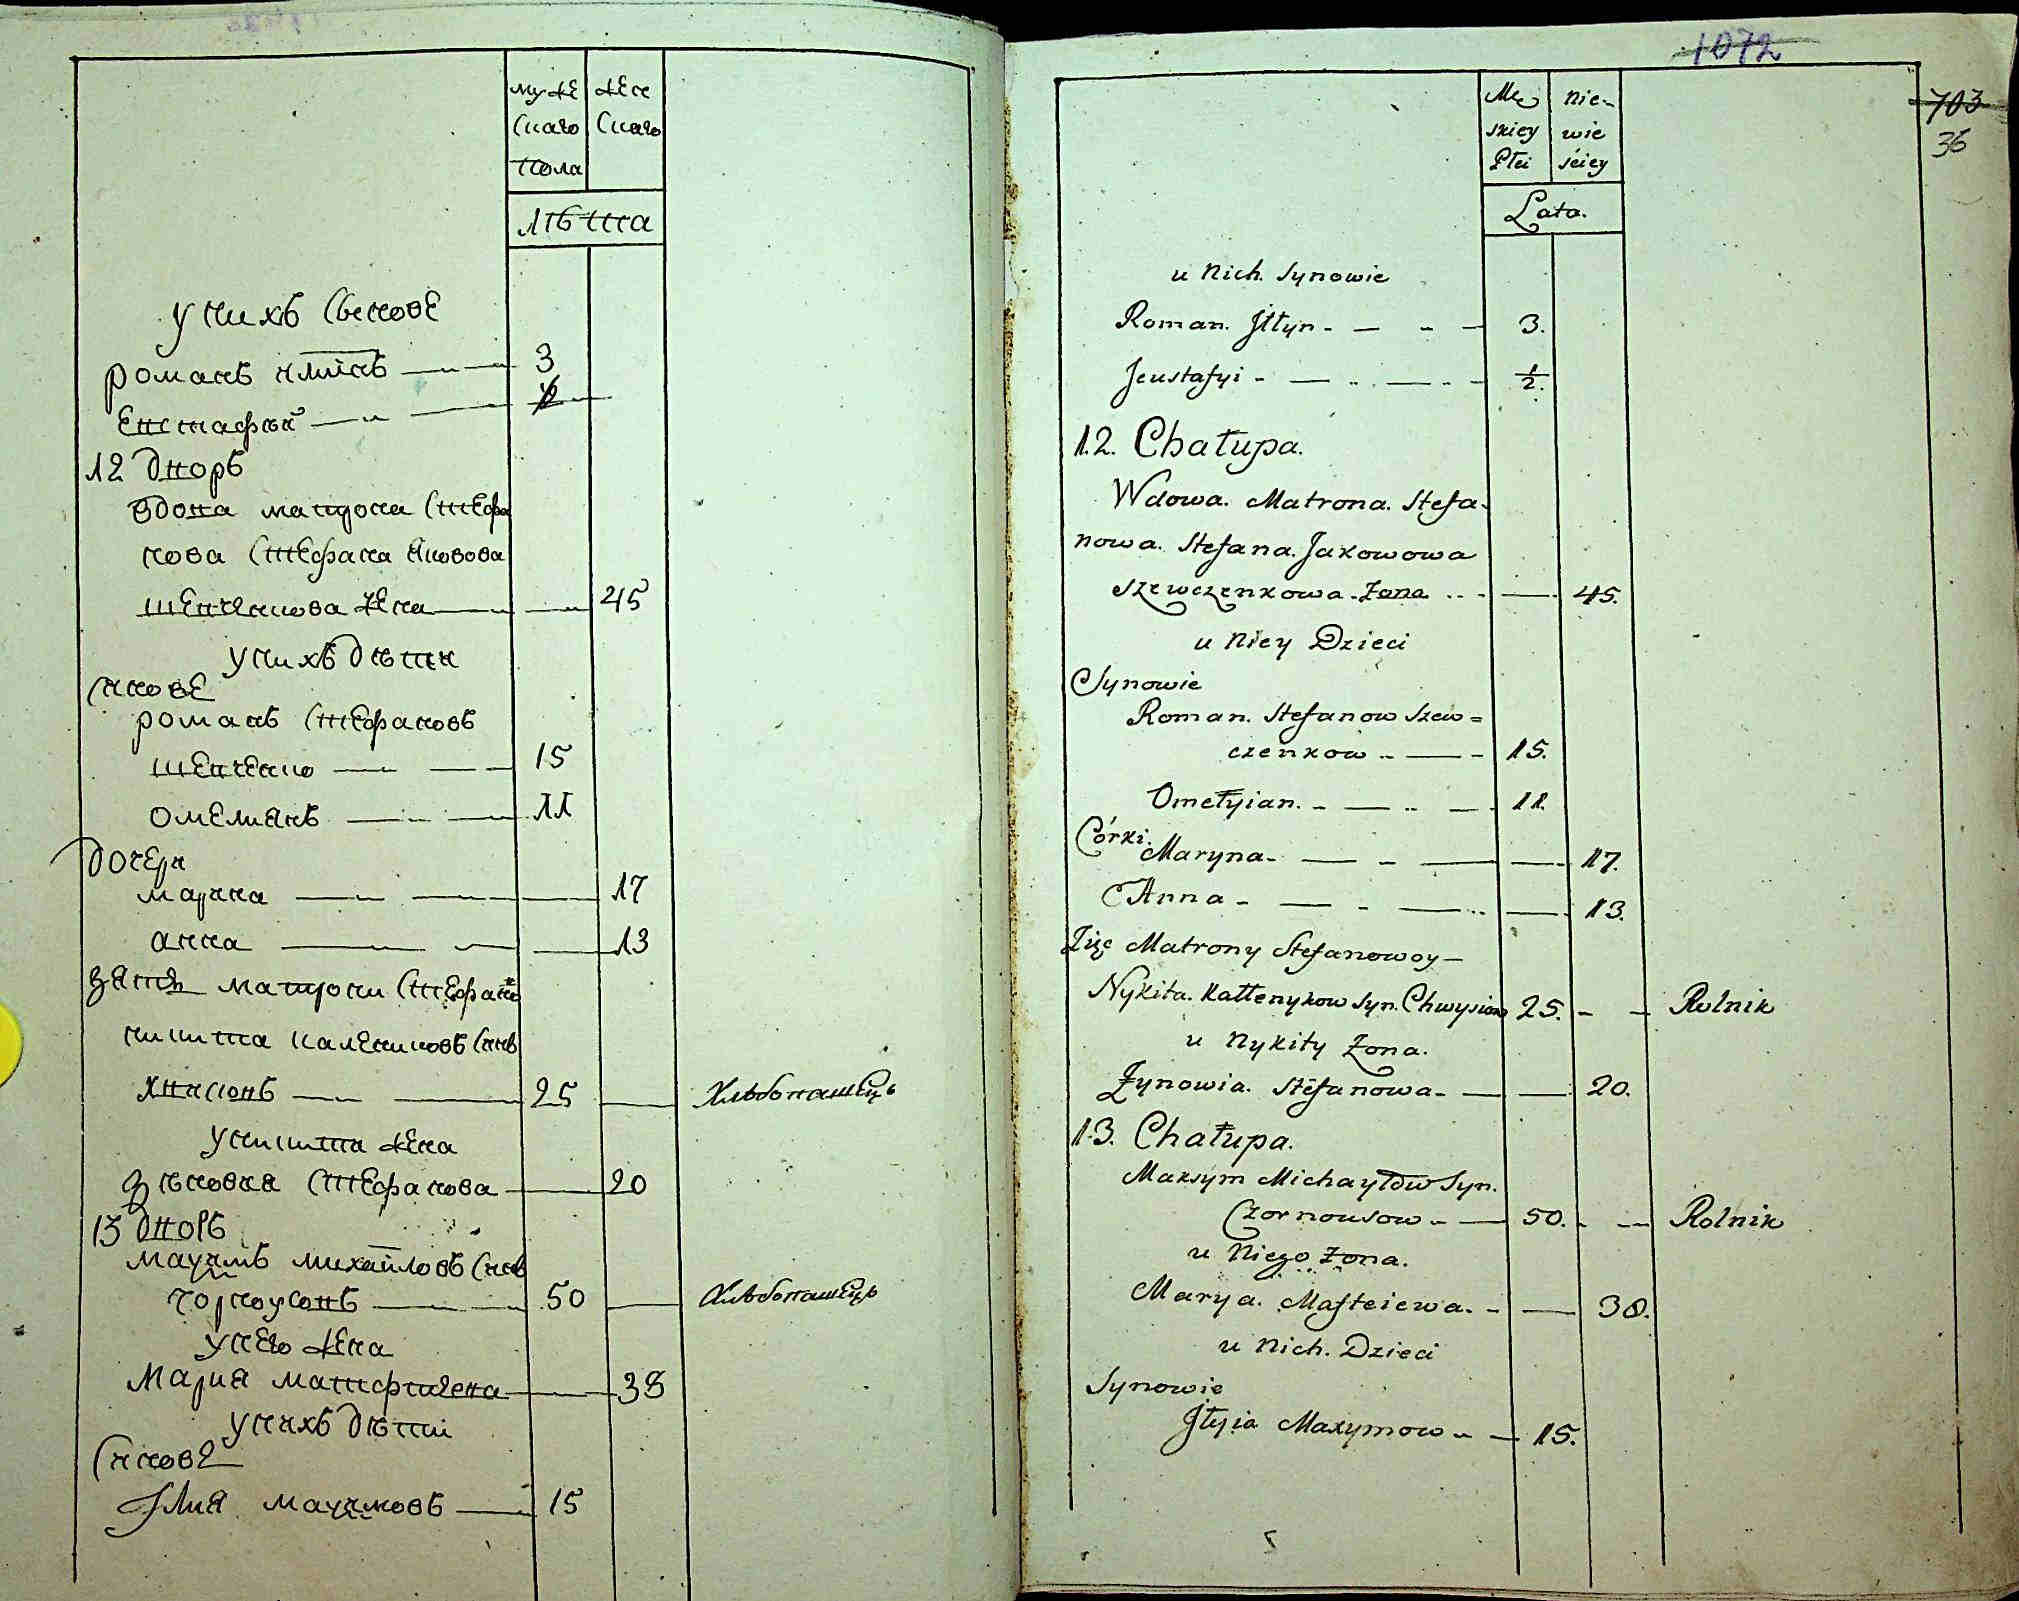 муже
скаго
пола
жен
скаго
лѣта
у нихъ сынове
романъ илинъ 3
Евстафий ½
12 дворъ
вдова матрона Стефа
нова Стефана Яковова
шевченкова жена 45
у нихъ дѣти
сынове
романъ Стефановъ
шевченко 15
омелиянъ 11
дочери
марина 17
анна 13
зять матрони Стефано
никита калениковъ синъ
хвисювъ 25 Хлѣбопашецъ
у никити жена
зѣновия Стефанова 20
13 дворъ
маѯимъ михайловъ синъ
чорноусовъ 50 Хлѣбопашецъ
у него жена
Мария матфиева 38
у нихъ дѣти
Синове
Илия маѯимовъ 15
1072
703
36
Mę
skiey
Płci
nie-
wie
ściey
Lata.
u Nich. Synowie
Roman. Jłłyn 3.
Jeustafyi ½.
12. Chałupa.
Wdowa. Matrona. Stefa-
nowa. Stefana. Jakowowa
Szewczenkowa. Żona 45.
u Niey Dzieci
Synowie
Roman. Stefanow Szew=
czenkow 15.
Omełyian. 11.
Córki.
Maryna 17.
Anna 13.
Zięć Matrony Stefanowoy
Nykita. Kałłenykow Syn. Chwysiow 25. Rolnik
u Nykity Żona.
Zynowia. Stefanowa 20.
13. Chałupa.
Maksym Michayłow Syn.
Czornousow 50. Rolnik
u Niego Żona.
Marya. Mafteiewa. 38.
u Nich. Dzieci
Synowie
Jłyia Maxymow 15.